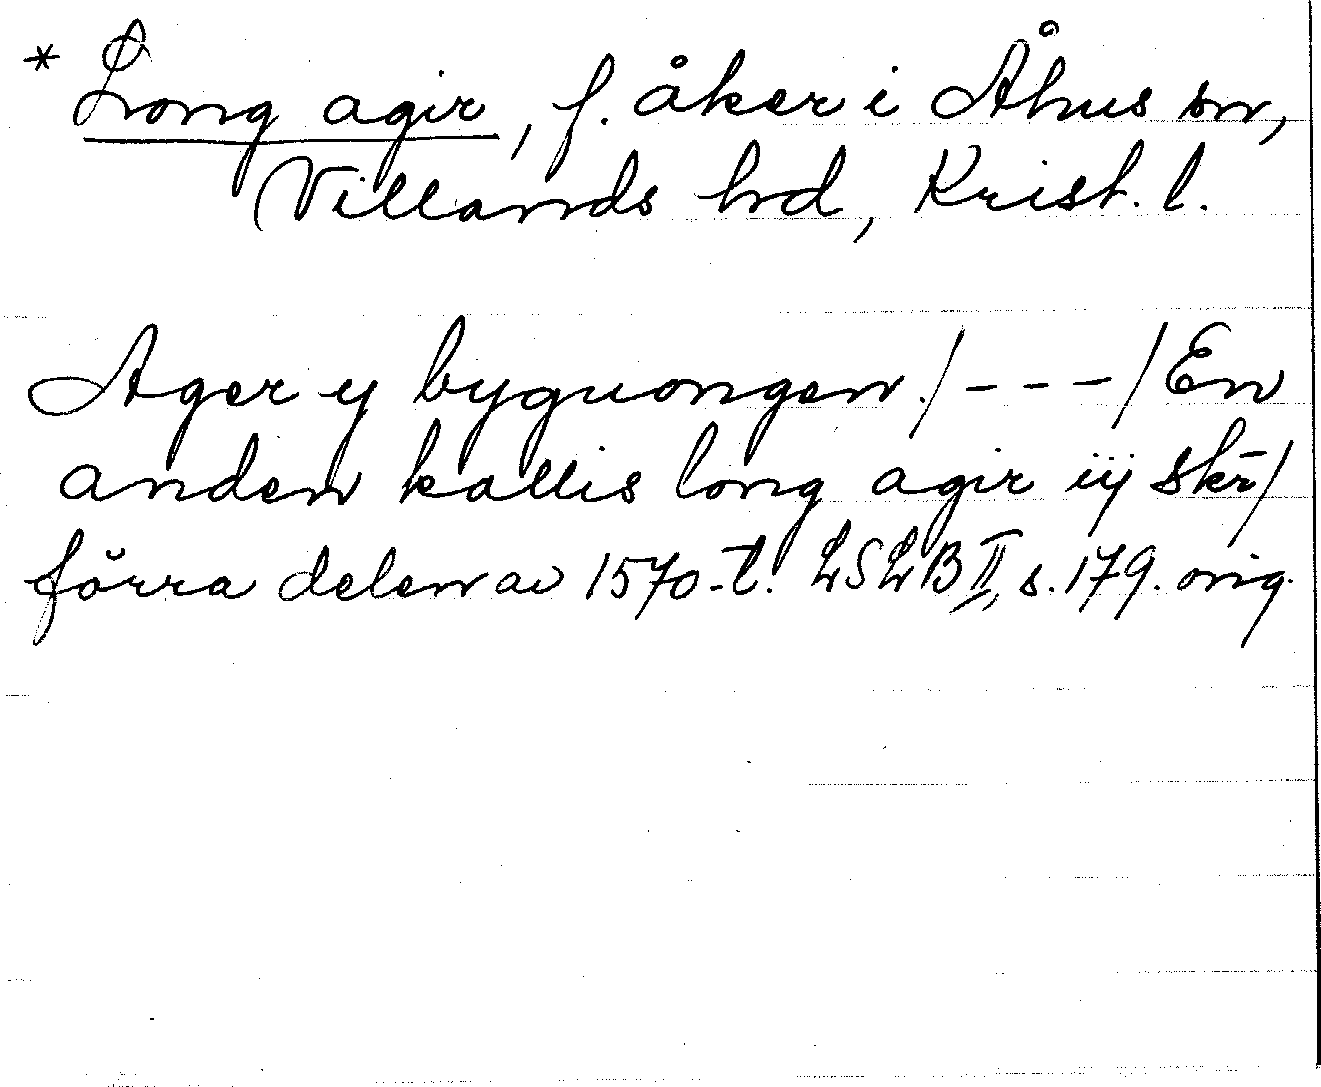 * Long agir, f. åker i Åhus sn,
Villands hd, Krist. l.
Ager y byguongen. /---/ En
anden kallis long agir iij skr̄/
förra delen av 1570-t. LSLB II, s. 179. orig.